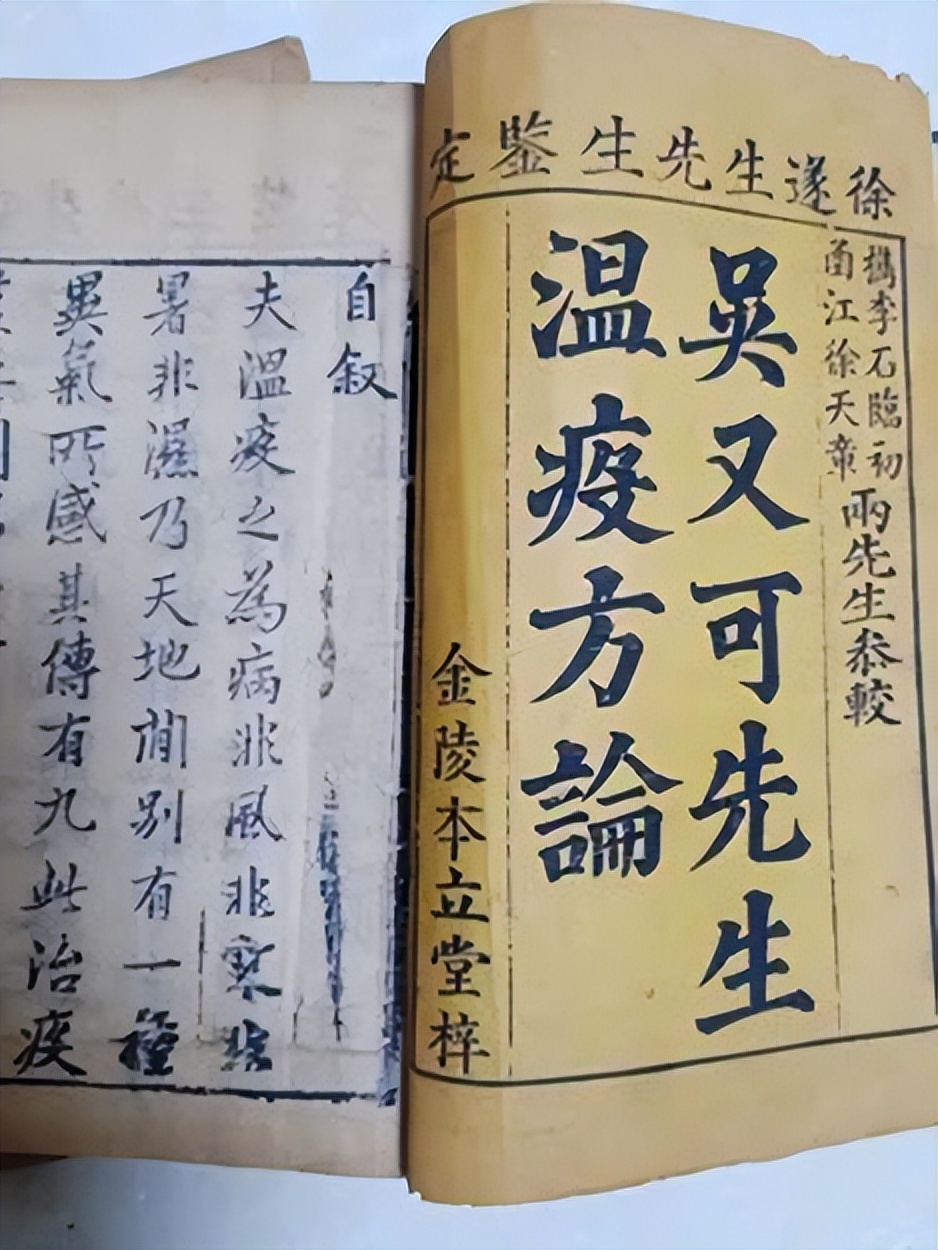 徐遂生先生鉴定
檇李石臨初
鹵江徐天章
兩先生叅較
吳又可先生
溫疫方論
金陵本立堂梓
自叙
夫溫疫之為病非風非寒非
暑非濕乃天地間别有一種
異氣所感其傳有九此治疫